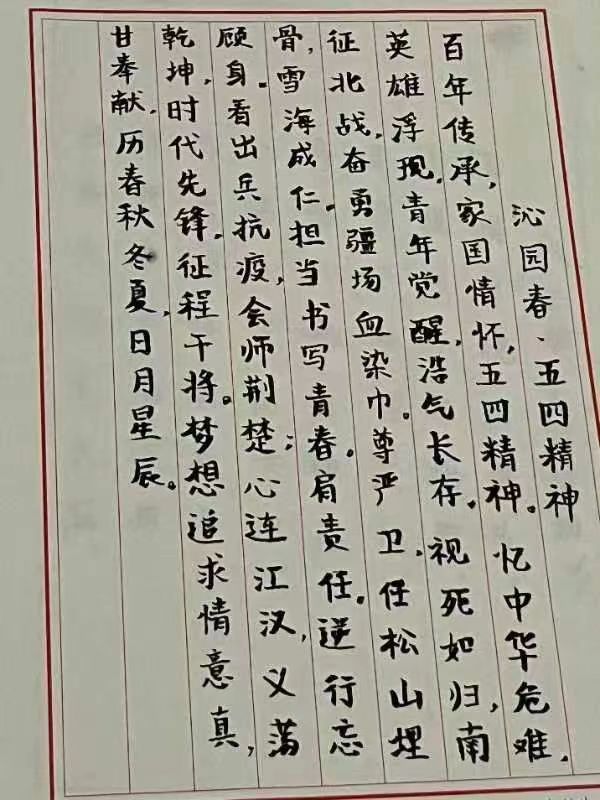 沁园春·五四精神
百年传承,家国情怀,五四精神。忆中华危难,
英雄浮现,青年觉醒,浩气长存。视死如归,南
征北战,奋勇疆场血染巾。尊严卫,任松山埋
骨,雪海成仁。担当书写青春。肩责任。逆行忘
顾身。看出兵抗疫,会师荆楚;心连江汉,义荡
乾坤,时代先锋,征程干将。梦想追求情意真,
甘奉献,历春秋冬夏,日月星辰。